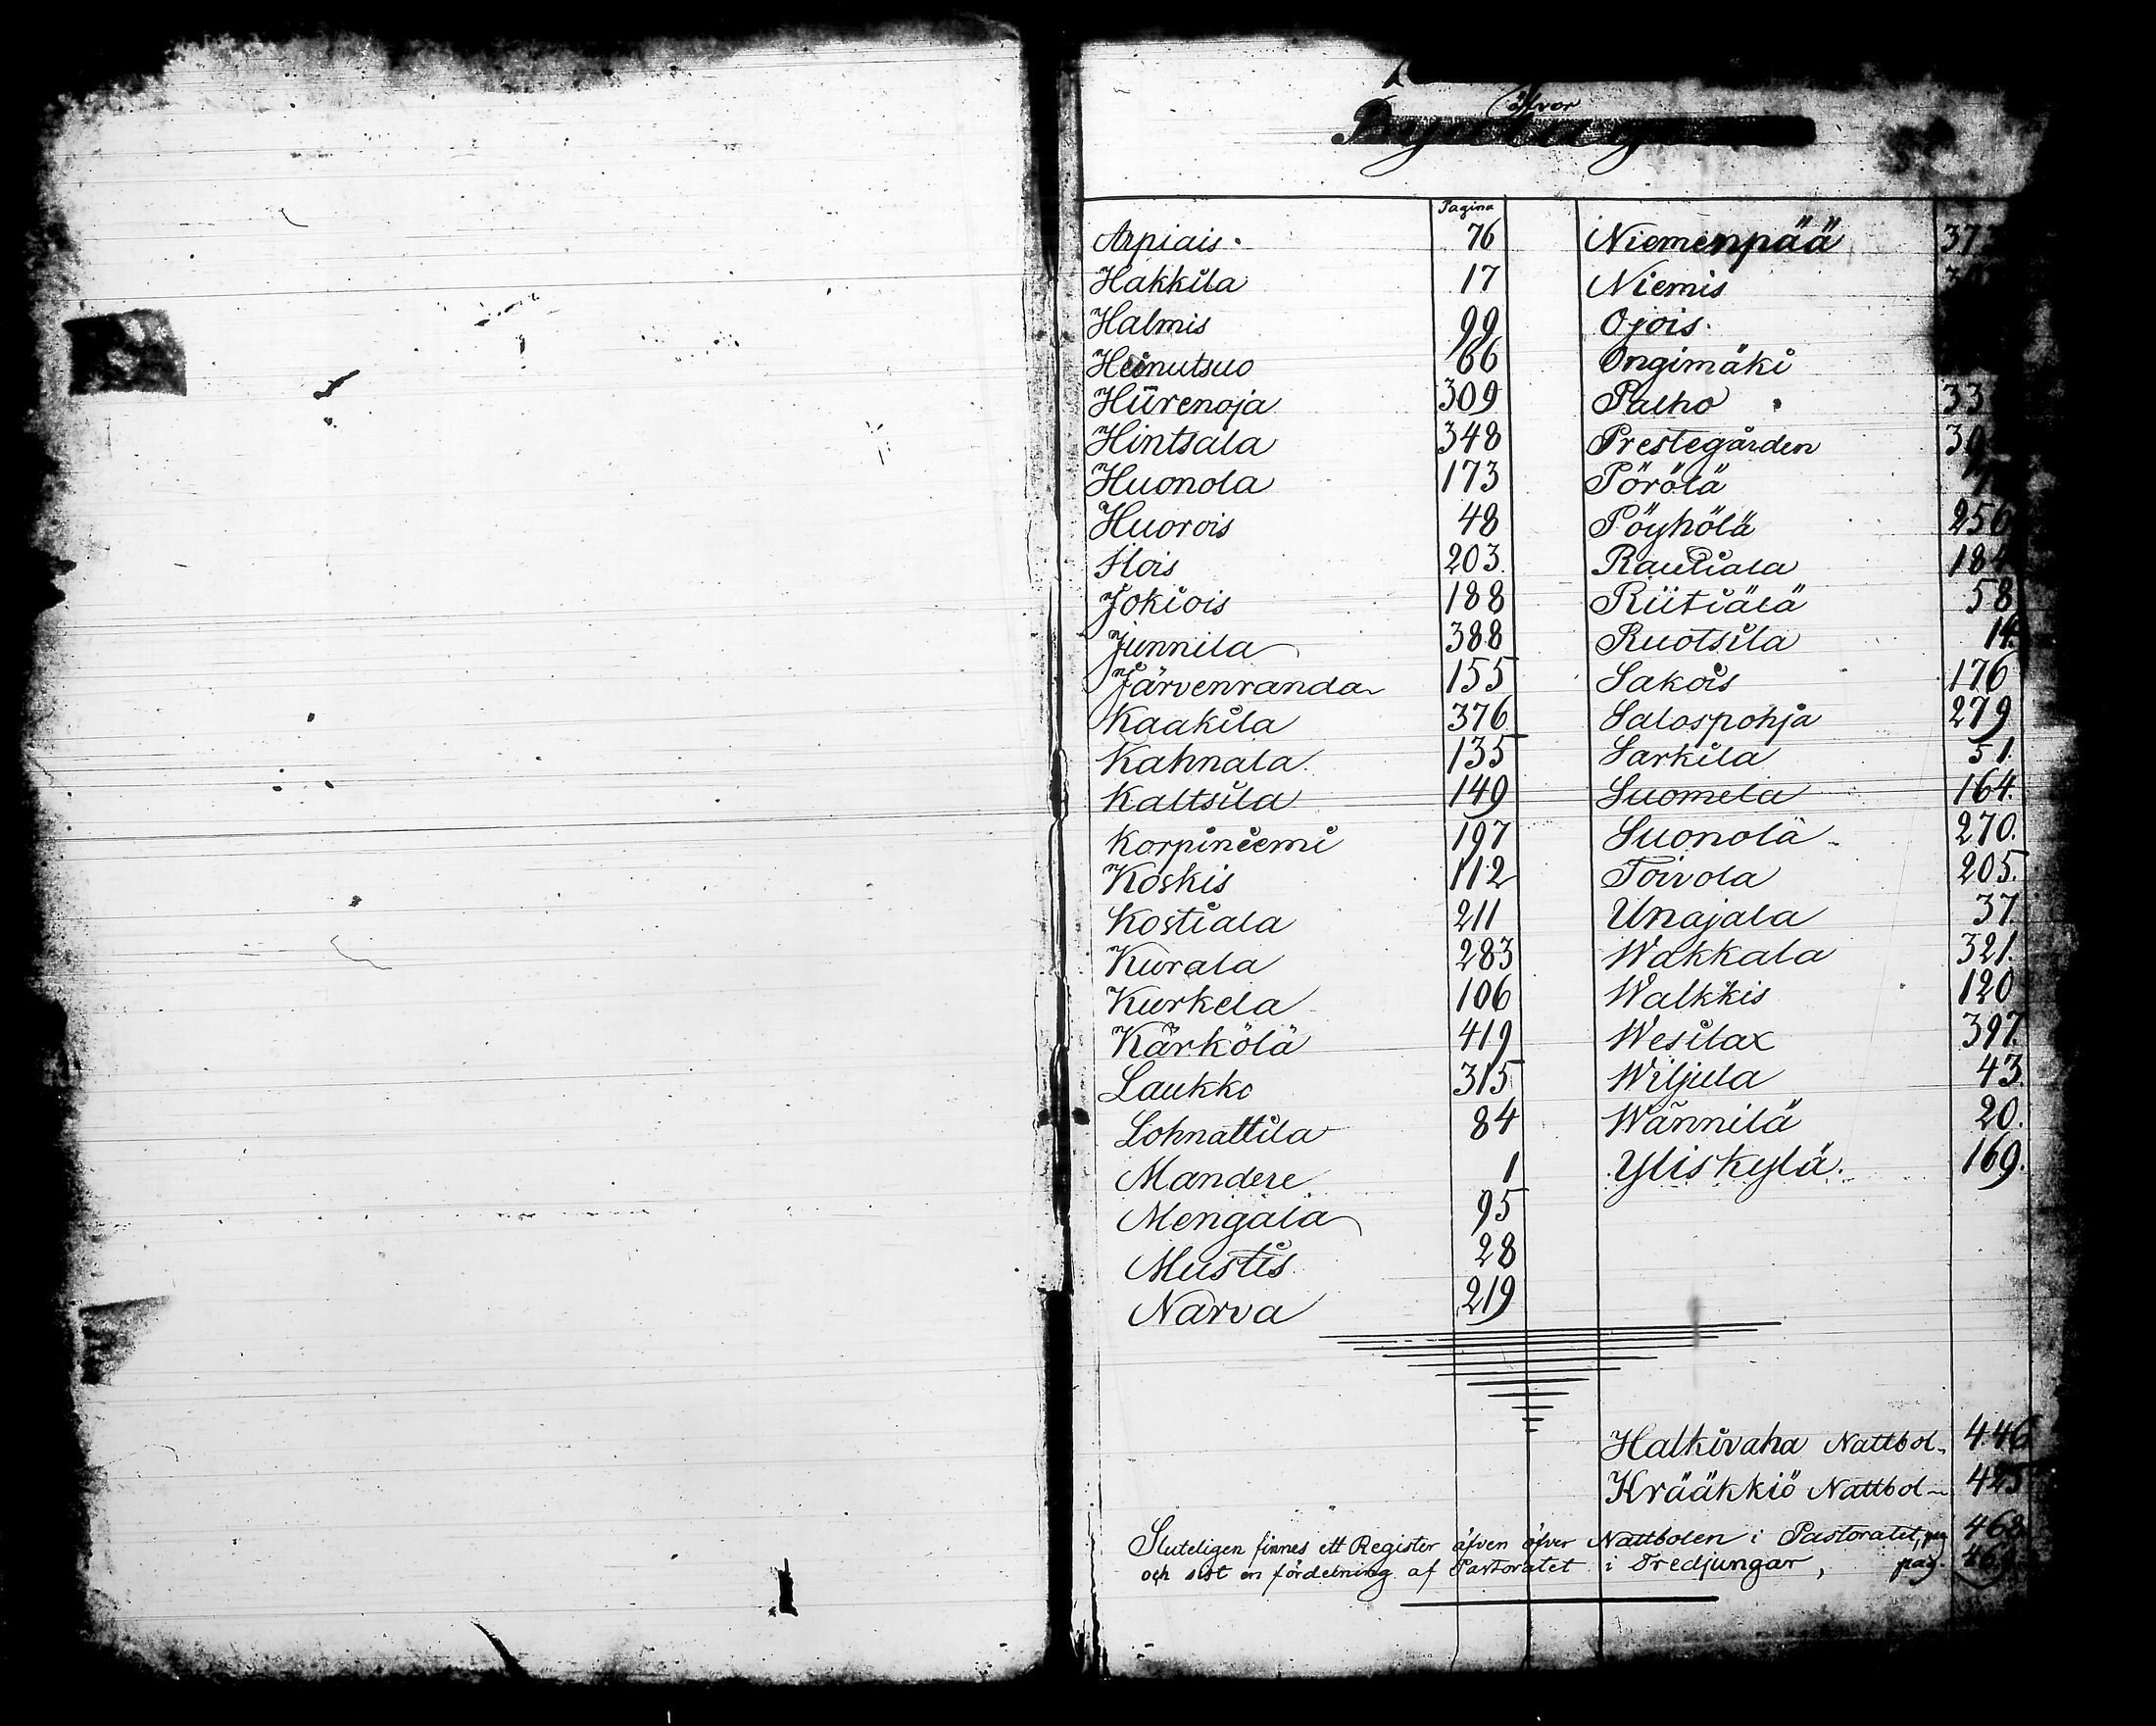 öfver
Pagina
Arpiais. 76
Hakkila 17
Halmis 99
Heinutsuo 66
Hiirenoja 309
Hintsala 348
Huonola 173
Huorois 48
Ilois 203.
Jokiois 188
Junnila 388
Järvenranda 155
Kaakila 376
Kahnala. 135
Kaltsila 149
Korpiniemi 197
Koskis 112
Kostiala 211
Kurala 283
Kurkela 106
Kärkölä 419
Laukko 315
Lohnattila 84
Mandere 1
Mengala 95
Mustis 28
Narva 219
Niemenpää
Niemis
Ojois.
Ongimäki
Palho
Prestegården
Pörölä
Pöyhölä 256
Rautiala 184
Riitiälä 58
Ruotsila 14.
Sakois 176
Salospohja 279
Sarkila 51.
Suomela 164.
Suonola 270.
Toivola 205.
Unajala 37
Wakkala 321.
Walkkis 120
Wesilax 397.
Wiljula 43.
Wännilä 20.
Yliskylä. 169.
Halkivaha Nattbol 446
Krääkkiö Nattbol 425
Sluteligen finnes ett Register äfven öfver Nattbolen i Pastoratet, pag 468
och sist en fördelning af Pastoratet i Tredjungar, pag.